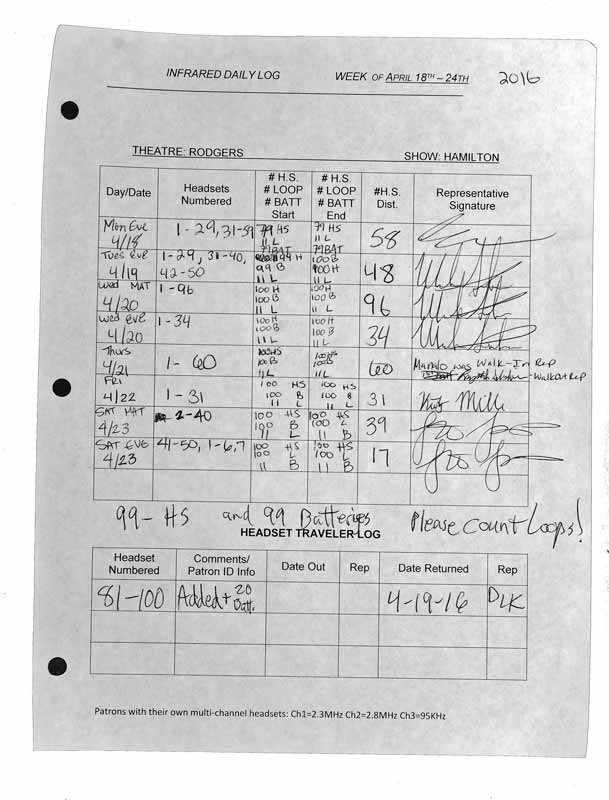 INFRARED DAILY LOG WEEK OF APRIL 18TH – 24TH 2016
THEATRE: RODGERS SHOW: HAMILTON
Day/Date Headsets Numbered # H.S. # LOOP # BATT Start # H.S. # LOOP # BATT End #H.S. Dist. Representative Signature
Mon Eve 4/18 1-29, 31-59 79 HS 11 L 79 BAT 79 HS 11 L 79 BAT 58
Tues Eve 4/19 1-29, 31-40, 42-50 99 H 99 B 11 L 100 B 100 H 11 L 48
Wed MAT 4/20 1-96 100 H 100 B 11 L 100 H 100 B 11 L 96
Wed Eve 4/20 1-34 100 H 100 B 11 L 100 H 100 B 11 L 34
Thurs 4/21 1-60 100 HS 100 B 11 L 100 HS 100 B 11 L 60 was Walk-In Rep - Walk Out Rep
FRI 4/22 1-31 100 HS 100 B 11 L 100 HS 100 B 11 L 31
SAT MAT 4/23 2-40 100 HS 100 B 11 L 100 HS 100 L 11 B 39
SAT EVE 4/23 41-50, 1-6, 7 100 HS 100 L 11 B 100 HS 100 L 11 B 17
99-HS and 99 Batteries Please Count Loops!
HEADSET TRAVELER LOG
Headset Numbered Comments/ Patron ID Info Date Out Rep Date Returned Rep
81-100 Added + 20 Batt. 4-19-16 DLK
Patrons with their own multi-channel headsets: Ch1=2.3MHz Ch2=2.8MHz Ch3=95KHz